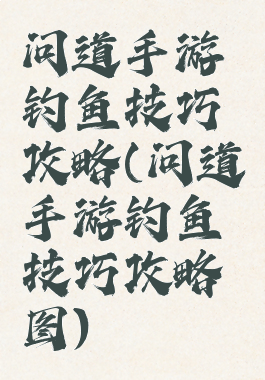 问道手游
钓鱼技巧
攻略(问道
手游钓鱼
技巧攻略
图)